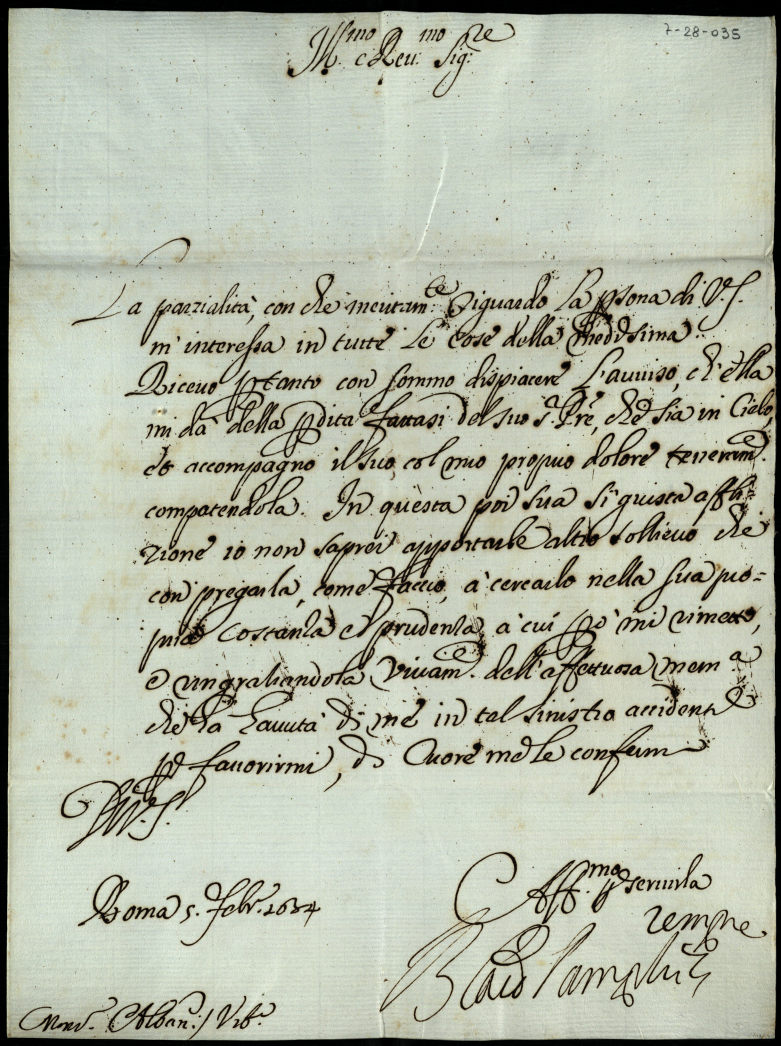 7-28-035
Ill.mo e Rev.mo Sig.re
La parzialità, con che meritam.te riguardo la psona di V.S.
m'interessa in tutte le cose della medesima.
Ricevo ptanto con sommo dispiacere l'avviso, ch'ella
mi dà della pdita fattasi del suo S.r Pre, che sia in Cielo,
et accompagno il suo col mio proprio dolore teneram.e
compatendola. In questa poi sua sì giusta affli=
zione io non saprei apportarle altro sollievo che
con pregarla, come faccio, à cercarlo nella sua pro=
pria costanza et prudenza, à cui pò mi rimetto,
e ringratiandola vivam.e dell'affettuosa mem.a
che ha havuta di me in tal sinistro accidente
p favorirmi, di Cuore me le confermo
Di V.S.
Roma 5. Febr.o
Aff.mo p servirla
sempre
B Card Pamphilj
Mons.r Alban.